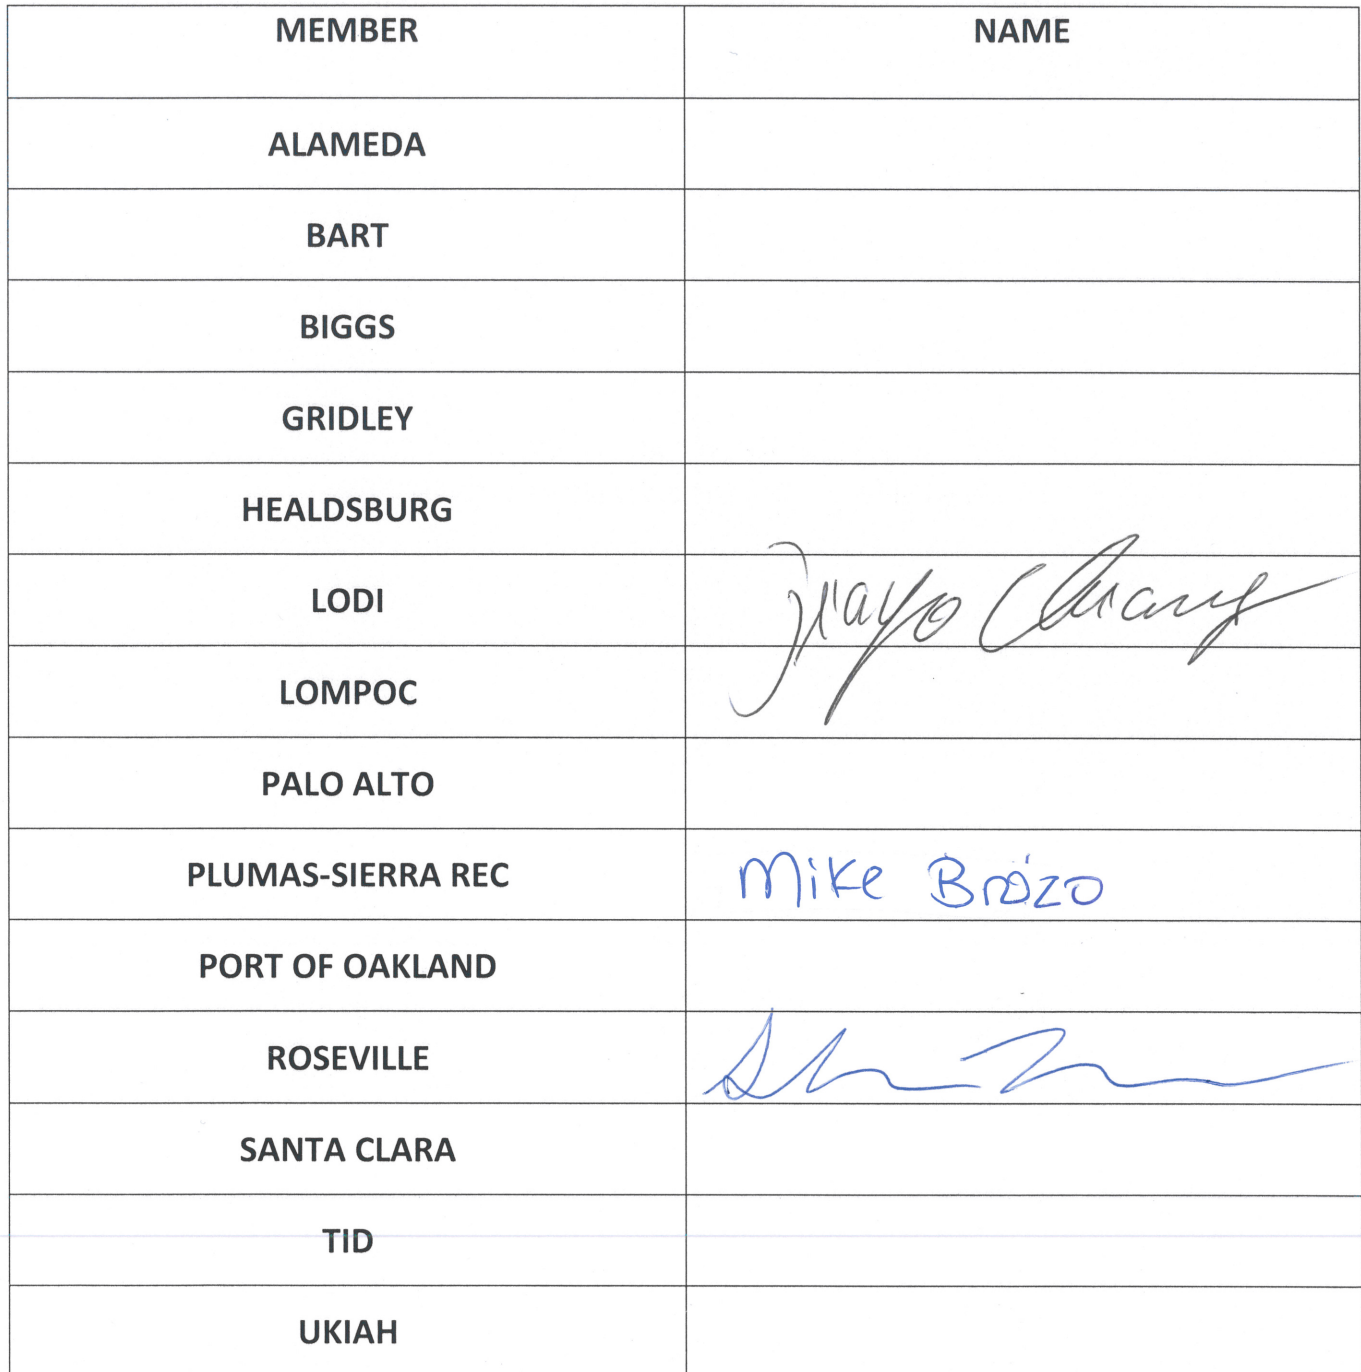 MEMBER NAME
ALAMEDA
BART
BIGGS
GRIDLEY
HEALDSBURG
LODI Jiayo Chiang
LOMPOC
PALO ALTO
PLUMAS-SIERRA REC Mike Brozo
PORT OF OAKLAND
ROSEVILLE
SANTA CLARA
TID
UKIAH